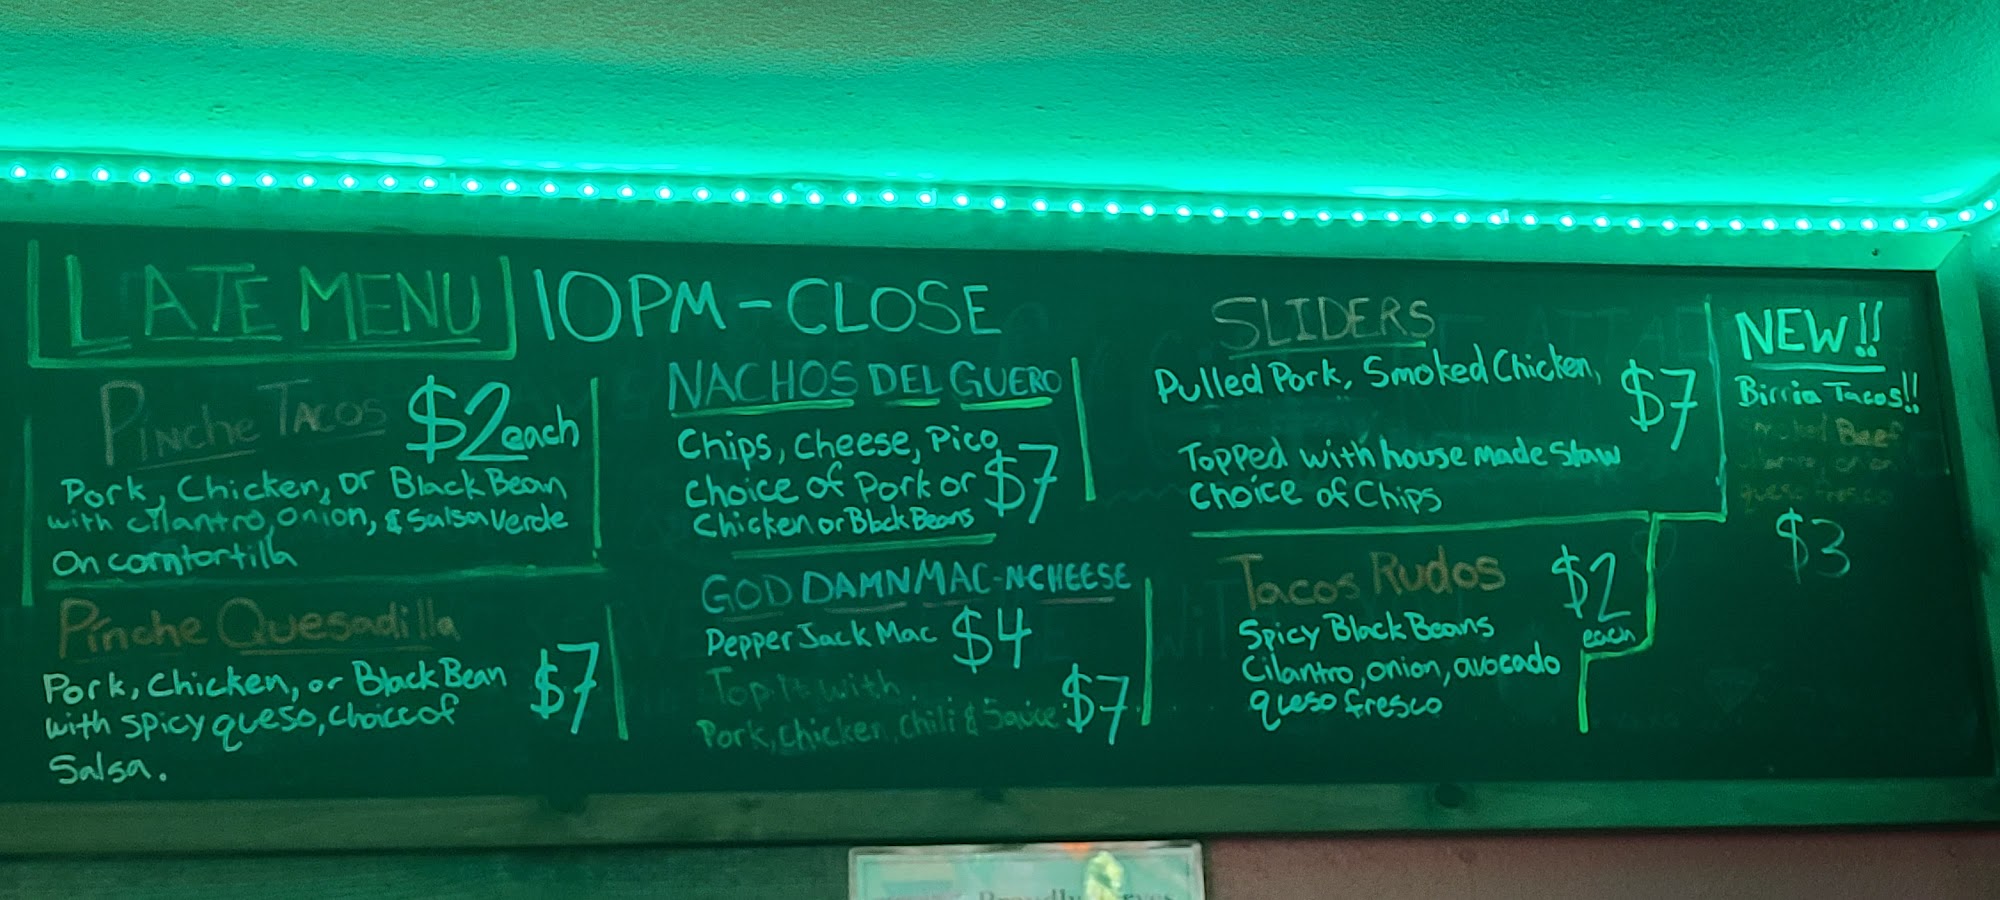 LATE MENU 10PM - CLOSE
PINCHE TACOS $2 each
Pork, Chicken, or Black Bean
with cilantro, onion, & Salsa Verde
on corn tortilla
Pinche Quesadilla
Pork, Chicken, or Black Bean $7
with spicy queso, choice of
Salsa.
NACHOS DEL GUERO
Chips, Cheese, Pico
choice of Pork or $7
Chicken or Black Beans
GOD DAMN MAC-N-CHEESE
Pepper Jack Mac $4
Top it with
Pork, chicken, chili & Sauce $7
SLIDERS
Pulled Pork, Smoked Chicken,
$7
Topped with house made Slaw
Choice of Chips
Tacos Rudos $2
each
Spicy Black Beans
Cilantro, onion, avocado
queso fresco
NEW!!
Birria Tacos!!
Beef
queso fresco
$3
Proudly